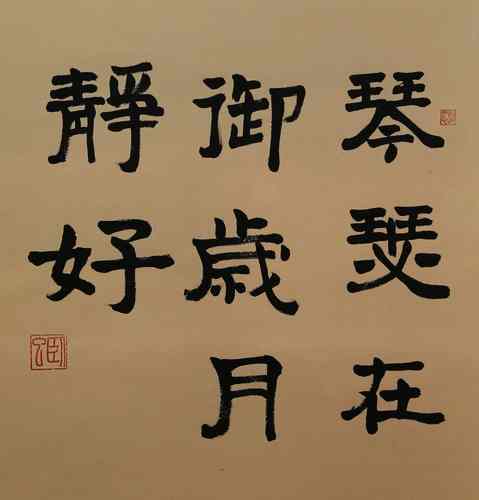 琴瑟在
御歳月
靜好